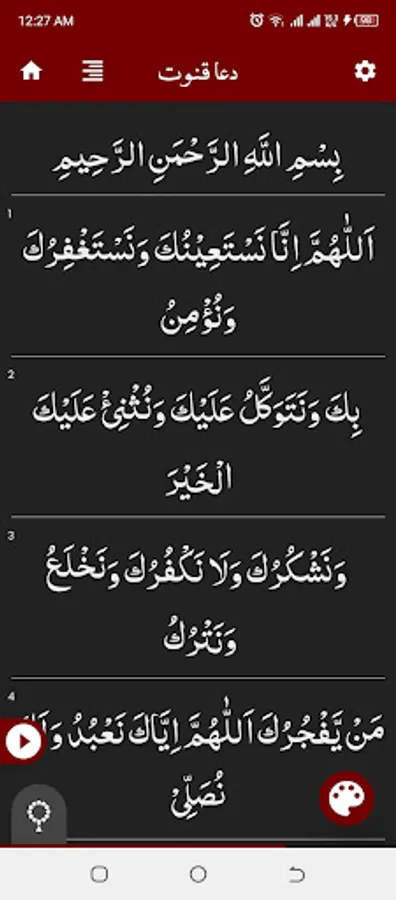 12:27 AM
دعا قنوت
بِسْمِ اللَّهِ الرَّحْمَنِ الرَّحِيمِ
1
اَللّٰهُمَّ اِنَّا نَسْتَعِيْنُكَ وَنَسْتَغْفِرُكَ
وَنُؤْمِنُ
2
بِكَ وَنَتَوَكَّلُ عَلَيْكَ وَنُثْنِئْ عَلَيْكَ
الْخَيْرَ
3
وَنَشْكُرُكَ وَلَا نَكْفُرُكَ وَنَخْلَعُ
وَنَتْرُكُ
4
مَنْ يَّفْجُرُكَ اَللّٰهُمَّ اِيَّاكَ نَعْبُدُ
نُصَلِّىْ